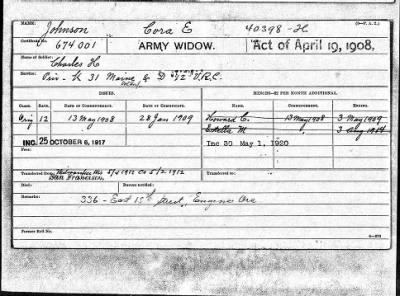 NAME: Johnson Cora E 40398-H (3-F.A.I.)
Certificate No. 674001 ARMY WIDOW. Law: Act of April 19, 1908.
Name of Soldier: Charles H
Service: Priv. K 31 Maine & D V.R.C.
ISSUES. MINORS—$2 PER MONTH ADDITIONAL.
CLASS. RATE. DATE OF COMMENCEMENT. DATE OF CERTIFICATE. NAME. COMMENCEMENT. ENDING.
Orig 12 13 May 1908 28 Jan 1909 Howard C. 13 May 1908 3 May 1909
Estella M. 3 Aug 1914
INC. 25 OCTOBER 6, 1917 Inc 30 May 1, 1920
Transferred from Milwaukee Wis 5/4 1912 Co 5/2 1912 Transferred to
San Francisco,
Died: Bureau notified:
Remarks: 336 - East 13th Street, Eugene Ore
Former Roll No.